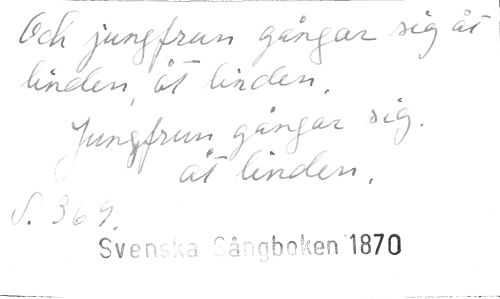 Och jungfrun gångar sig åt
linden, åt linden.
Jungfrun gångar sig.
åt linden.
S. 369.
Svenska Sångboken 1870